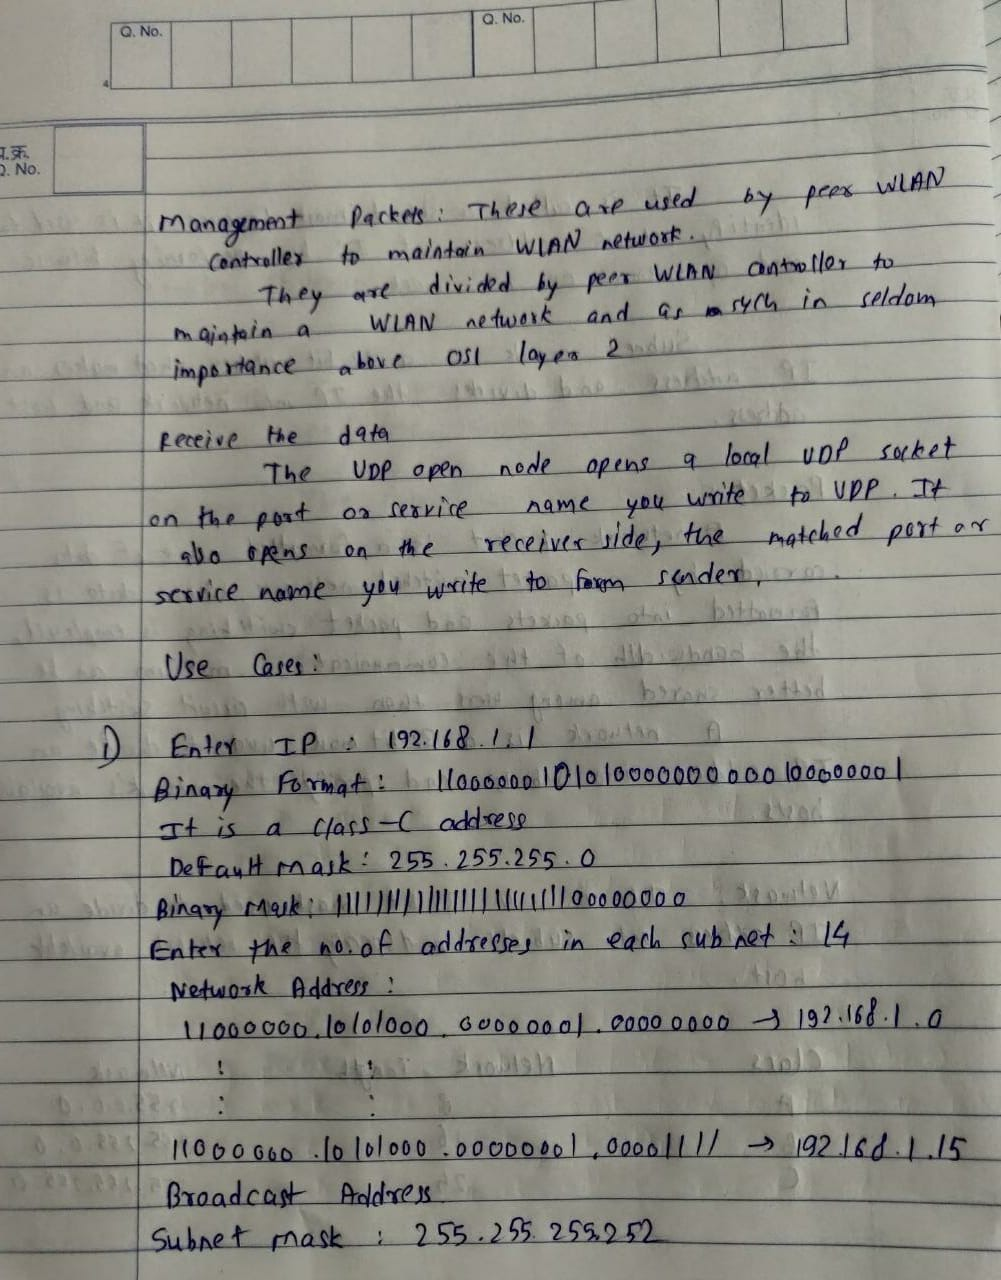 Q. No.
Q. No.
प्र.क्र.
Q. No.
Management Packets : These are used by peer WLAN
Controller to maintain WLAN network.
They are divided by peer WLAN controller to
maintain a WLAN network and as such in seldom
importance above OSI layer 2
Receive the data
The UDP open node opens a local UDP socket
on the port or service name you write to UDP. It
also opens on the receiver side, the matched port or
service name you write to form sender.
Use Cases :
1) Enter IP : 192.168.1.1
Binary Format : 11000000101010000000000010000001
It is a Class-C address
Default mask : 255.255.255.0
Binary Mask : 11111111111111111111111100000000
Enter the no. of addresses in each subnet : 14
Network Address :
11000000.10101000.00000001.00000000 → 192.168.1.0
: :
: :
11000000.10101000.00000001.00001111 → 192.168.1.15
Broadcast Address
Subnet mask : 255.255.255.252